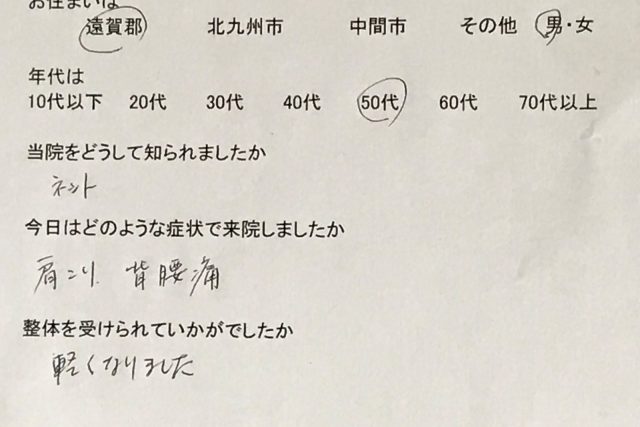 お住まいは
遠賀郡 北九州市 中間市 その他 男・女
年代は
10代以下 20代 30代 40代 50代 60代 70代以上
当院をどうして知られましたか
ネット
今日はどのような症状で来院しましたか
肩こり 背腰痛
整体を受けられていかがでしたか
軽くなりました